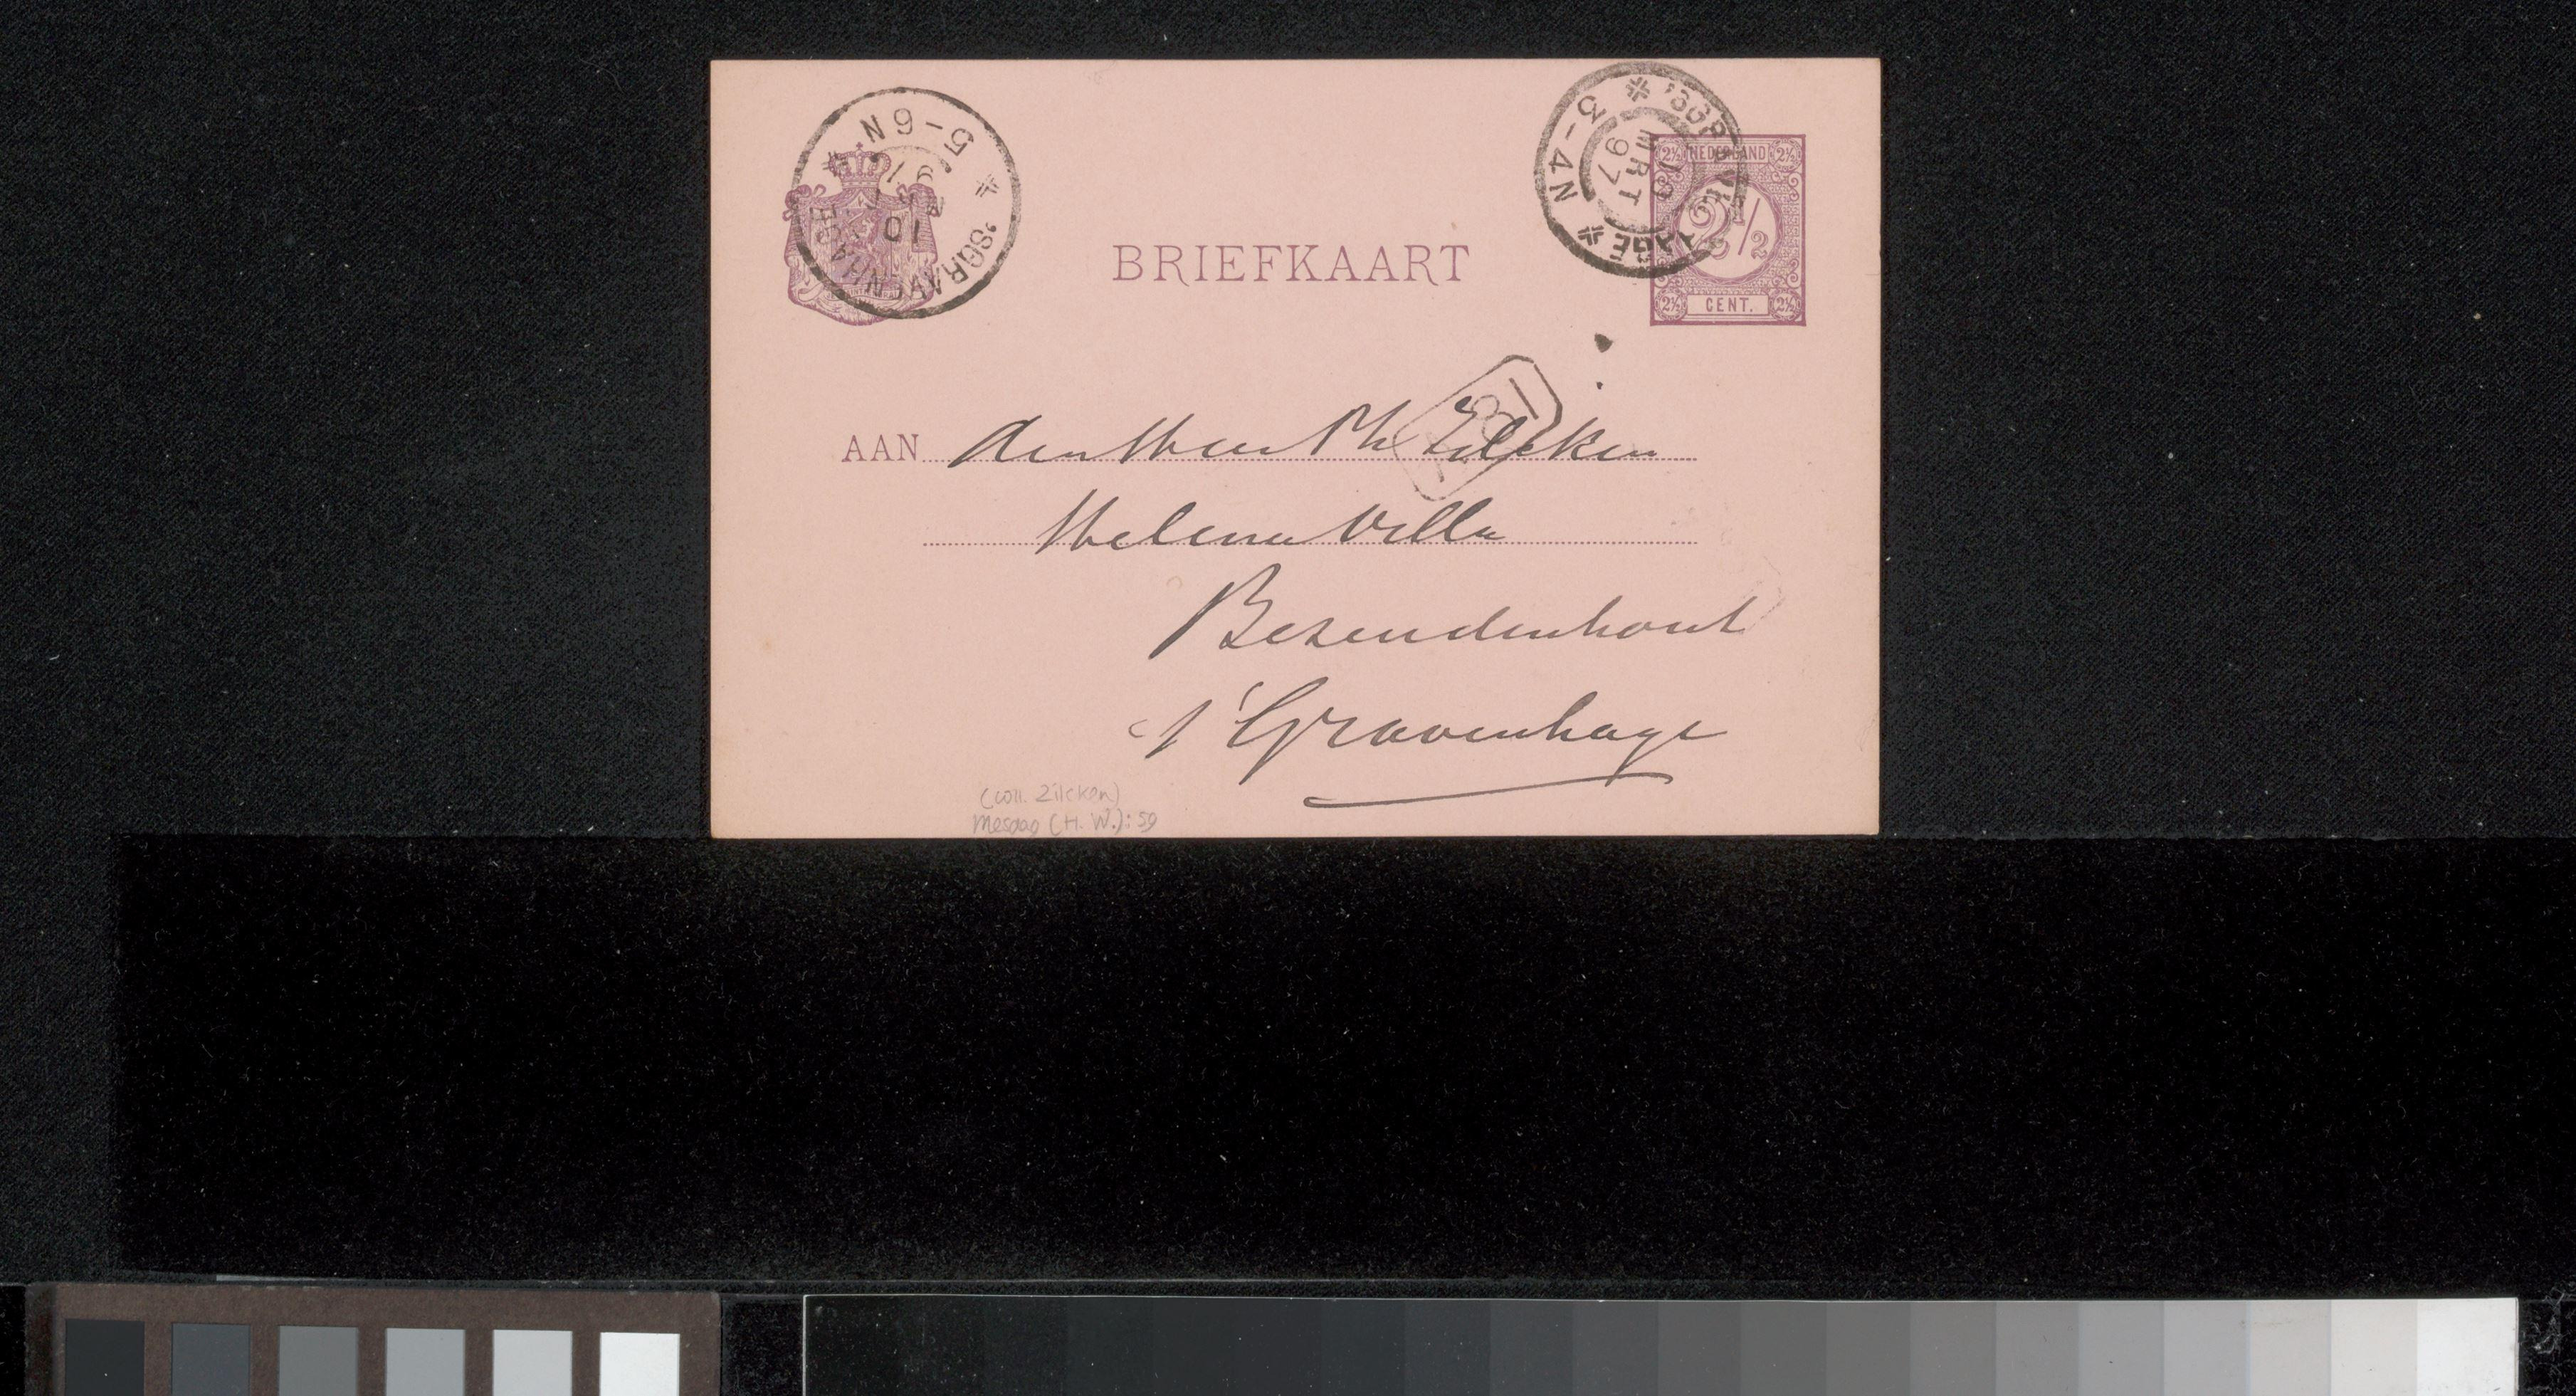 5-6N
'SGRAVENHAGE
10
'SGRAVENHAGE
3-4N
10
MRT
97
2½ NEDERLAND 2½
2½
2½ CENT. 2½
BRIEFKAART
AAN den Heer Ph Zilcken
Helena Villa
Bezuidenhout
s'Gravenhage
(coll. Zilcken)
Mesdag (H. W.): 59